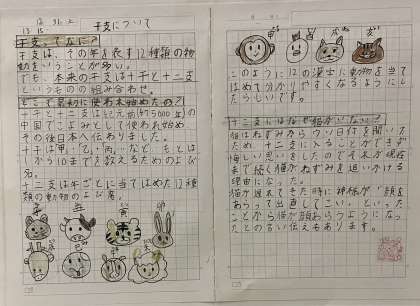 干支について
干支ってなに?
干支は、その年を表す12種類の動物
動をいうことが多い。
でも、本来の干支は十干と十二支
というものの組み合わせ。
どこで最初に使われ始めたの?
十干と十二支は紀元前約5000年の
中国でこよみとして使われ始め、
その後日本へ伝わりました。
十干は「甲・乙・丙…」など、もとは
1から10までを数えるためのよび
名。
十二支は年ごとに当てはめた12種
類の動物のよび名。
子
丑
寅
卯
申
酉
戌
亥
このように12の漢字に動物を当て
はめて分かりやすくなるようにし
たらしいです。
十二支にはなぜ猫がいない?
猫はねずみからウソの日付を聞いた
ため、十二支に入ることができず
悔しい思いをしたので「それが現在
まで続く猫がねずみを追いかける
理由になった。
猫が遅れてきた時に神様が「顔を
あらって出直してこい。」といった
ことから猫が顔あらうようになっ
たとの言い伝えもあります。